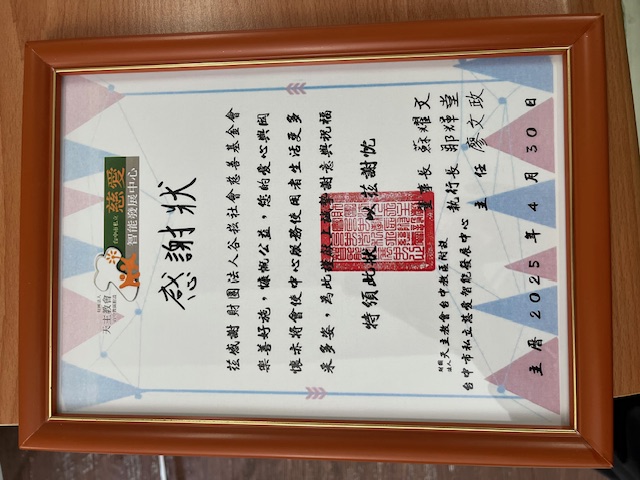 天主教會
台中市私立
慈愛
智能發展中心
感謝狀
茲感謝 財團法人谷社會慈善基金會
樂善好施,慷慨公益,您的愛心與關
懷亦將會使中心服務使用者生活更多
采多姿,為此謹獻上誠摯謝意與祝福
特頒此狀 以茲謝忱
董事長 蘇耀文
財團法人天主教會台中教區附設 執行長 輝堂
台中市私立慈愛智能發展中心 主任 廖文政
主曆 2025 年 4 月 30 日